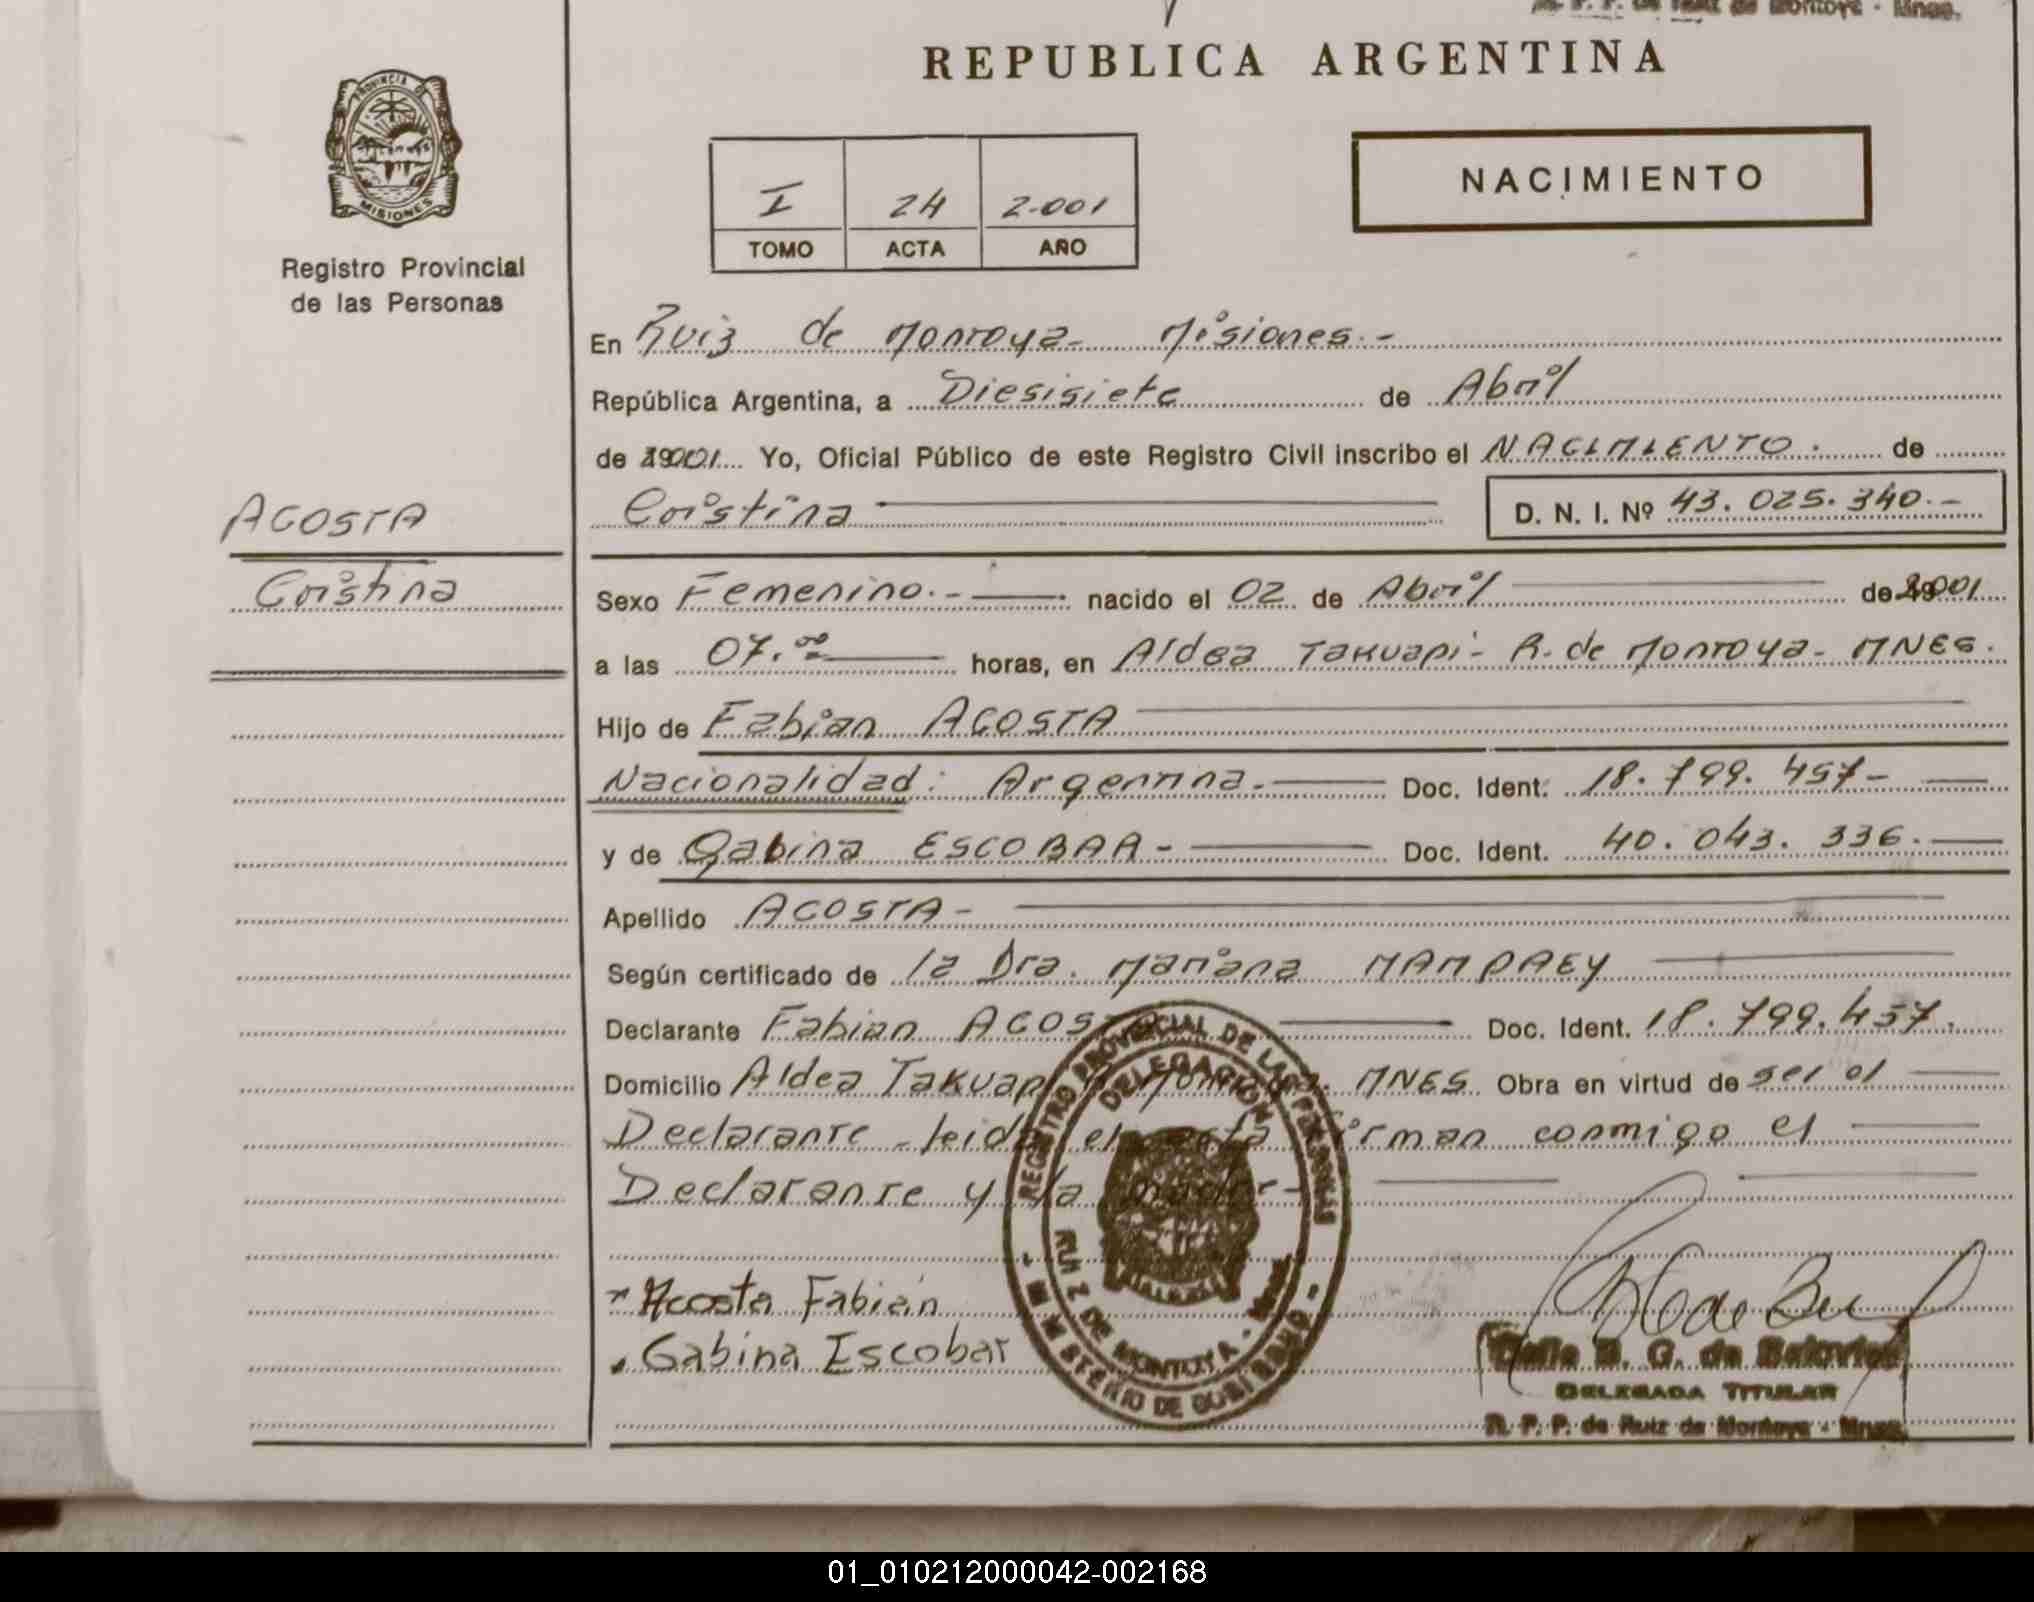 R. P. P. de Ruiz de Montoya - Mnes.
REPUBLICA ARGENTINA
PROVINCIA DE
MISIONES
Registro Provincial
de las Personas
I 24 2.001
TOMO ACTA AÑO
NACIMIENTO
En Ruiz de Montoya - Misiones.-
República Argentina, a Diesisiete de Abril
de 2001 Yo, Oficial Público de este Registro Civil inscribo el NACIMIENTO. de
Cristina D. N. I. Nº 43.025.340.-
ACOSTA
Cristina
Sexo Femenino.- nacido el 02 de Abril de 2001
a las 07.00 horas, en Aldea Takuapi - R. de Montoya - MNES.
Hijo de Fabian ACOSTA
Nacionalidad: Argentina.- Doc. Ident. 18.799.457-
y de Gabina ESCOBAR - Doc. Ident. 40.043.336.-
Apellido ACOSTA -
Según certificado de la Dra. Mariana MAMPAEY
Declarante Fabian ACOSTA Doc. Ident. 18.799.457.
Domicilio Aldea Takuapi Montoya. MNES Obra en virtud de ser el
Declarante - leida el acta firman conmigo el
Declarante y la madre-
Acosta Fabián
Gabina Escobar
REGISTRO PROVINCIAL DE LAS PERSONAS
DELEGACION
RUIZ DE MONTOYA -
- MINISTERIO DE GOBIERNO -
B. G. de
DELEGADA TITULAR
R. P. P. de Ruiz de Montoya - Mnes.
01_010212000042-002168